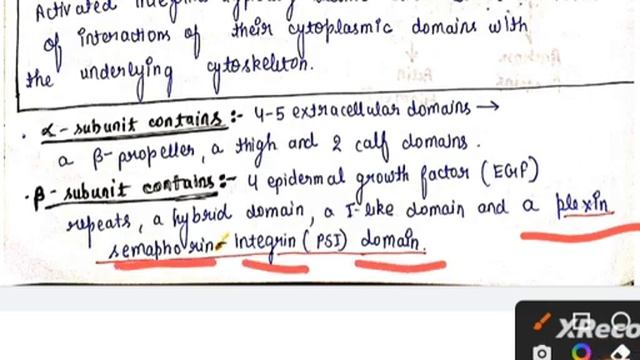 Activated
of interactions of their cytoplasmic domains with
the underlying cytoskeleton.
α-subunit contains:- 4-5 extracellular domains →
a β-propeller, a thigh and 2 calf domains.
· β-subunit contains:- 4 epidermal growth factor (EGF)
repeats, a hybrid domain, a I-like domain and a plexin
semaphorin- Integrin (PSI) domain.
XReco